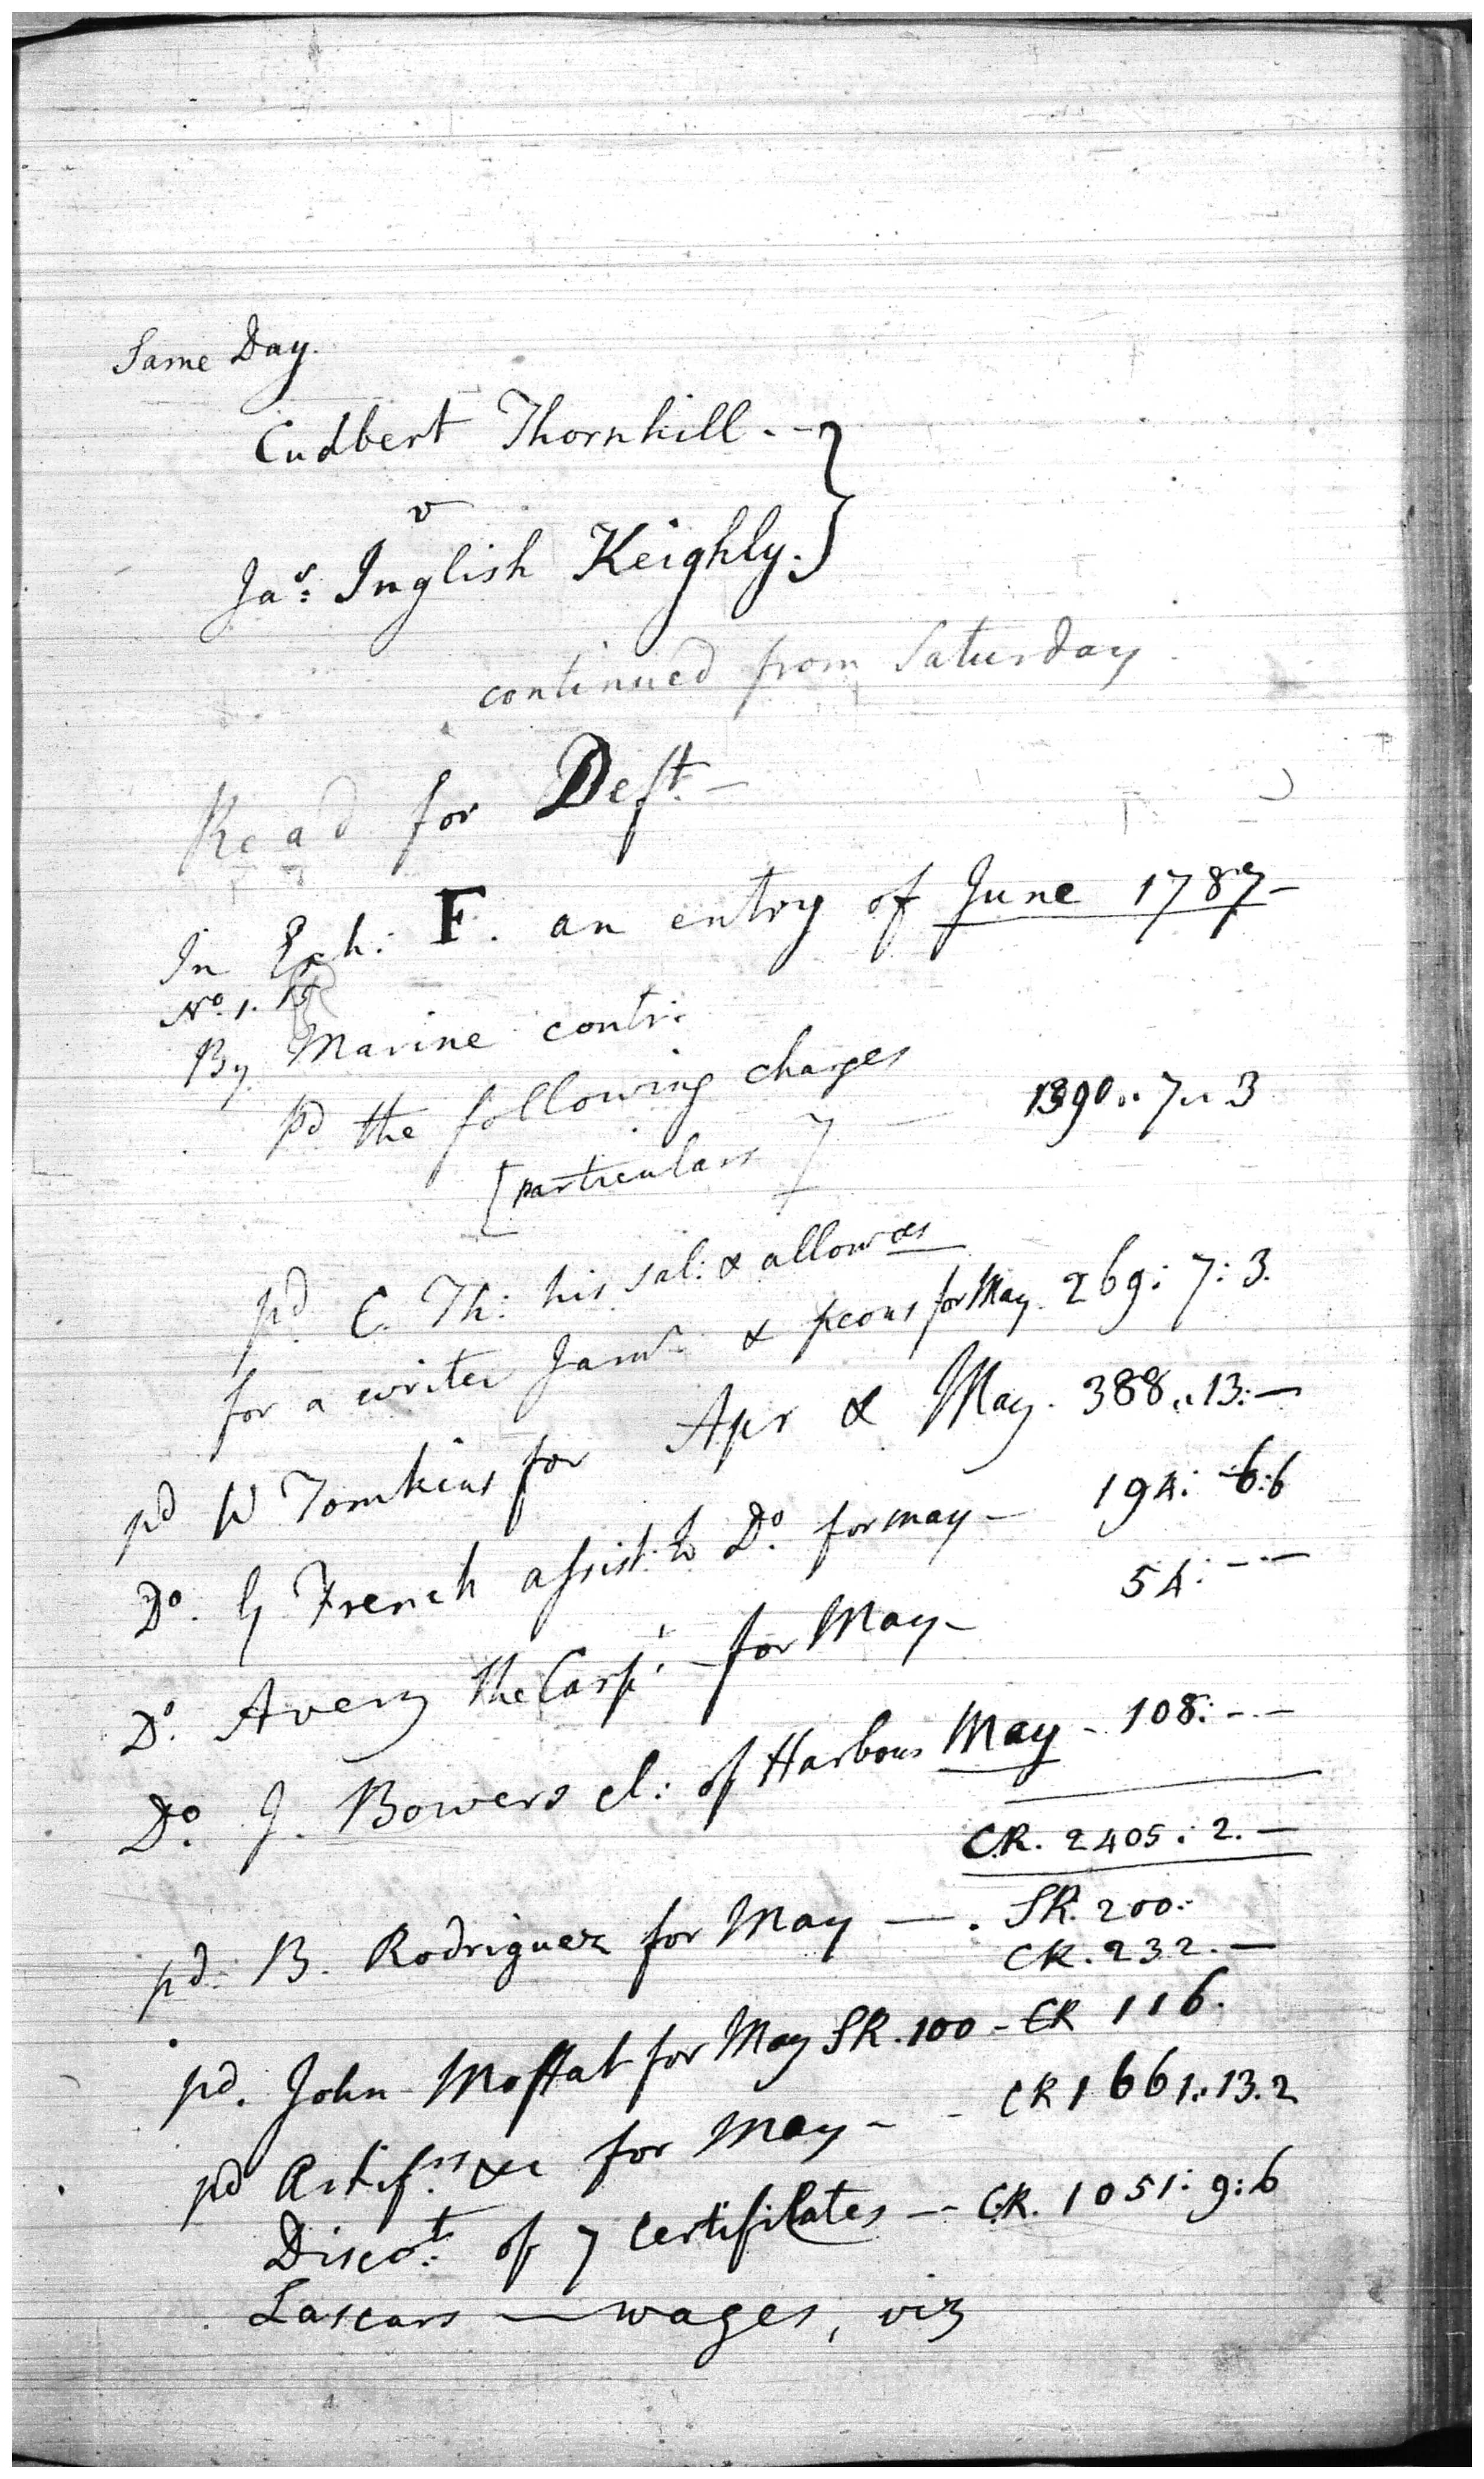 Same Day.
Cudbert Thornhill. -
v
Jas: Inglish Keighly.
continued from Saturday.
Read for Deft. -
In Exh: F. an entry of June 1787 -
No. 1.
By Marine contr:
pd the following charges
[particulars] - 1390 .. 7 .. 3
pd. C. Th: his sal: & allowces
for a writer & peons for May. 269: 7: 3.
pd W Tomkins for Apr & May. 388 .. 13: -
Do. G French assist: to Do. for may - 194: 6: 6
Do. Avery the Carpr. for May - 54: - -
Do. J. Bowers cl: of Harbour May - 108: - -
CR. 2405: 2. -
pd: B. Rodriguez for May - . SR. 200:
CR. 232. -
pd. John Moffat for May SR. 100 - CR 116.
pd Artifrs &c for May - - CR 1661: 13. 2
Discot: of 7 Certificates - - CR. 1051: 9: 6
Lascars - wages, viz